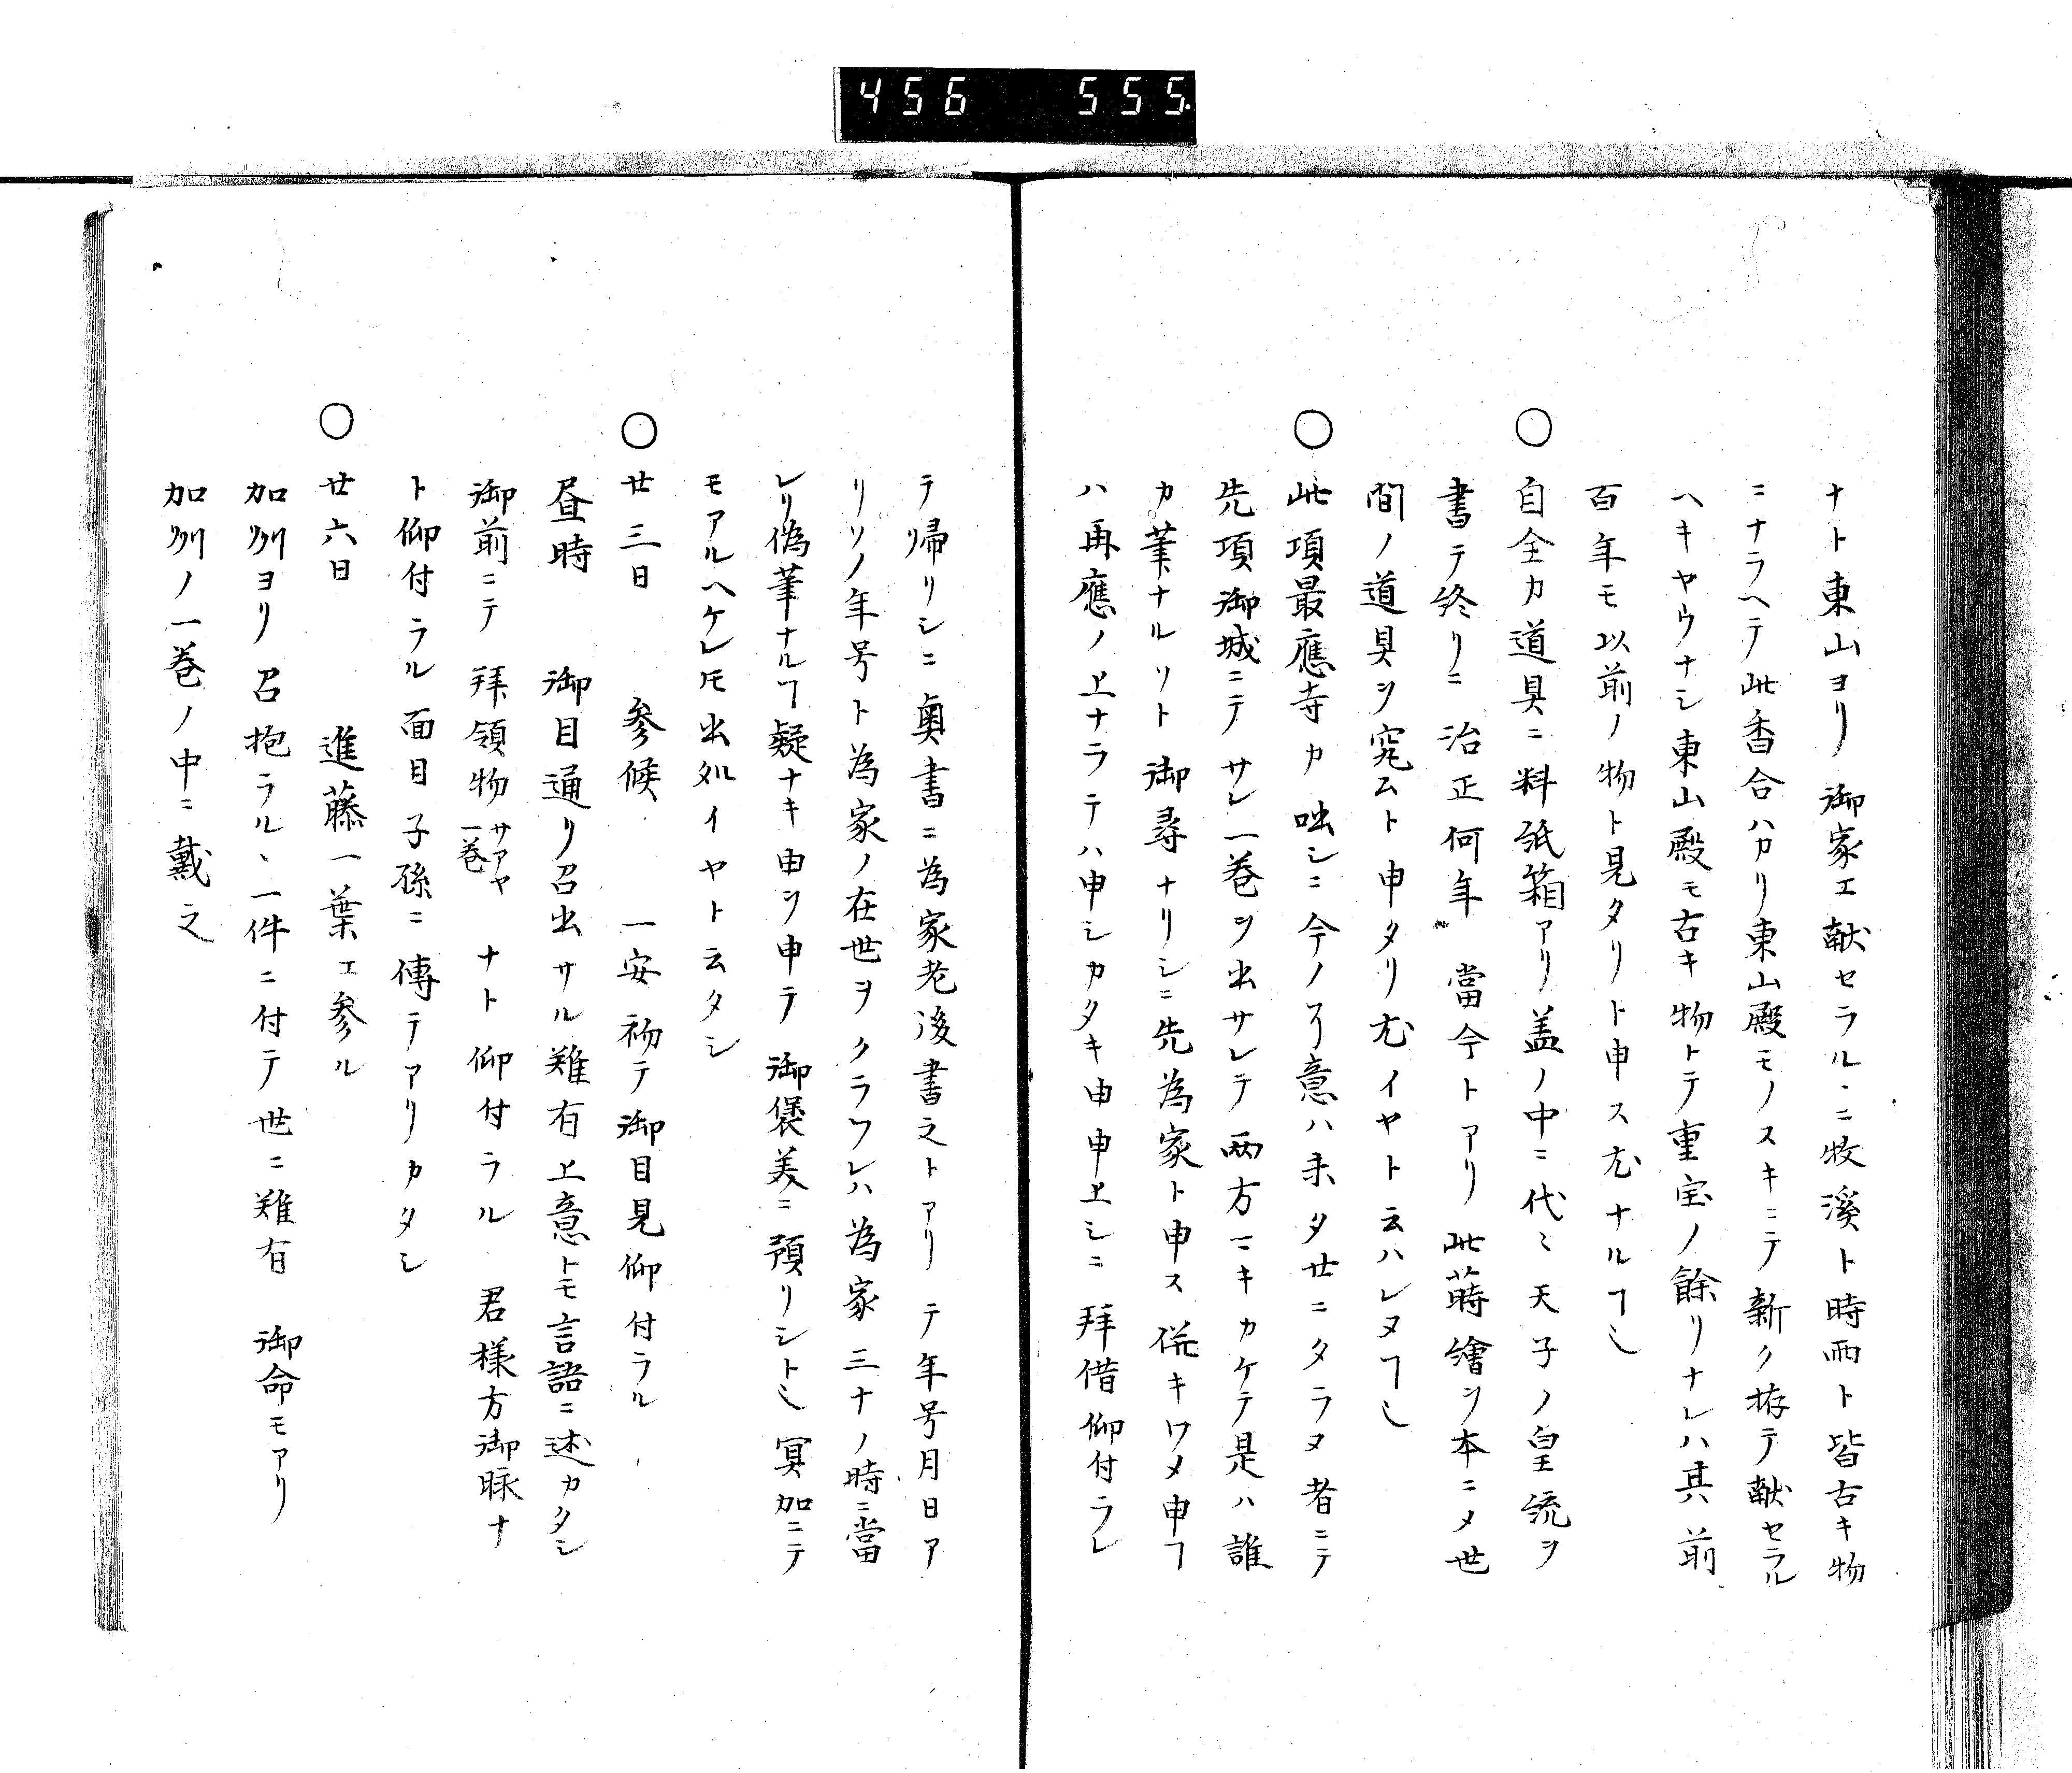 456 555.
ナト東山ヨリ 御家エ献セラルヽニ牧溪ト時雨ト皆古キ物
ニナラヘテ此香合ハカリ東山殿モノスキニテ新ク拵テ献セラル
ヘキヤウナシ東山殿モ古キ物トテ重宝ノ餘リナレハ其前
百年モ以前ノ物ト見タリト申ス尤ナルヿ也
○ 自全カ道具ニ料紙箱アリ盖ノ中ニ代〻天子ノ皇統ヲ
書テ終リニ 治正何年 當今トアリ此蒔繪ヲ本ニメ世
間ノ道具ヲ究ムト申タリ尤イヤト云ハレヌヿ也
○ 此項最應寺カ咄シニ今ノ了意ハ未タ廿ニタラヌ者ニテ
先項御城ニテサレ一巻ヲ出サレテ両方ニキカケテ是ハ誰
カ筆ナルソト 御尋ナリシニ先為家ト申ス併キワメ申ヿ
ハ再應ノ上ナラテハ申シカタキ由申上シニ 拜借仰付ラレ
テ帰リシニ奥書ニ為家老後書之トアリ テ年号月日ア
リソノ年号ト為家ノ在世ヲクラフレハ為家三十ノ時ニ當
レリ偽筆ナルヿ疑ナキ由ヲ申テ 御褒美ニ預リシト也冥加ニテ
モアルヘケレ𪜈出処イヤト云タシ
○ 廿三日 参候 一安 初テ御目見仰付ラル
昼時 御目通リ召出サル難有上意トモ言語ニ述カタシ
御前ニテ 拜領物サアヤ一巻 ナト仰付ラル 君様方御脉ナ
ト仰付ラル面目子孫ニ傳テアリカタシ
○ 廿六日 進藤一葉エ参ル
加刕ヨリ召抱ラルヽ一件ニ付テ世ニ難有 御命モアリ
加刕ノ一巻ノ中ニ戴之